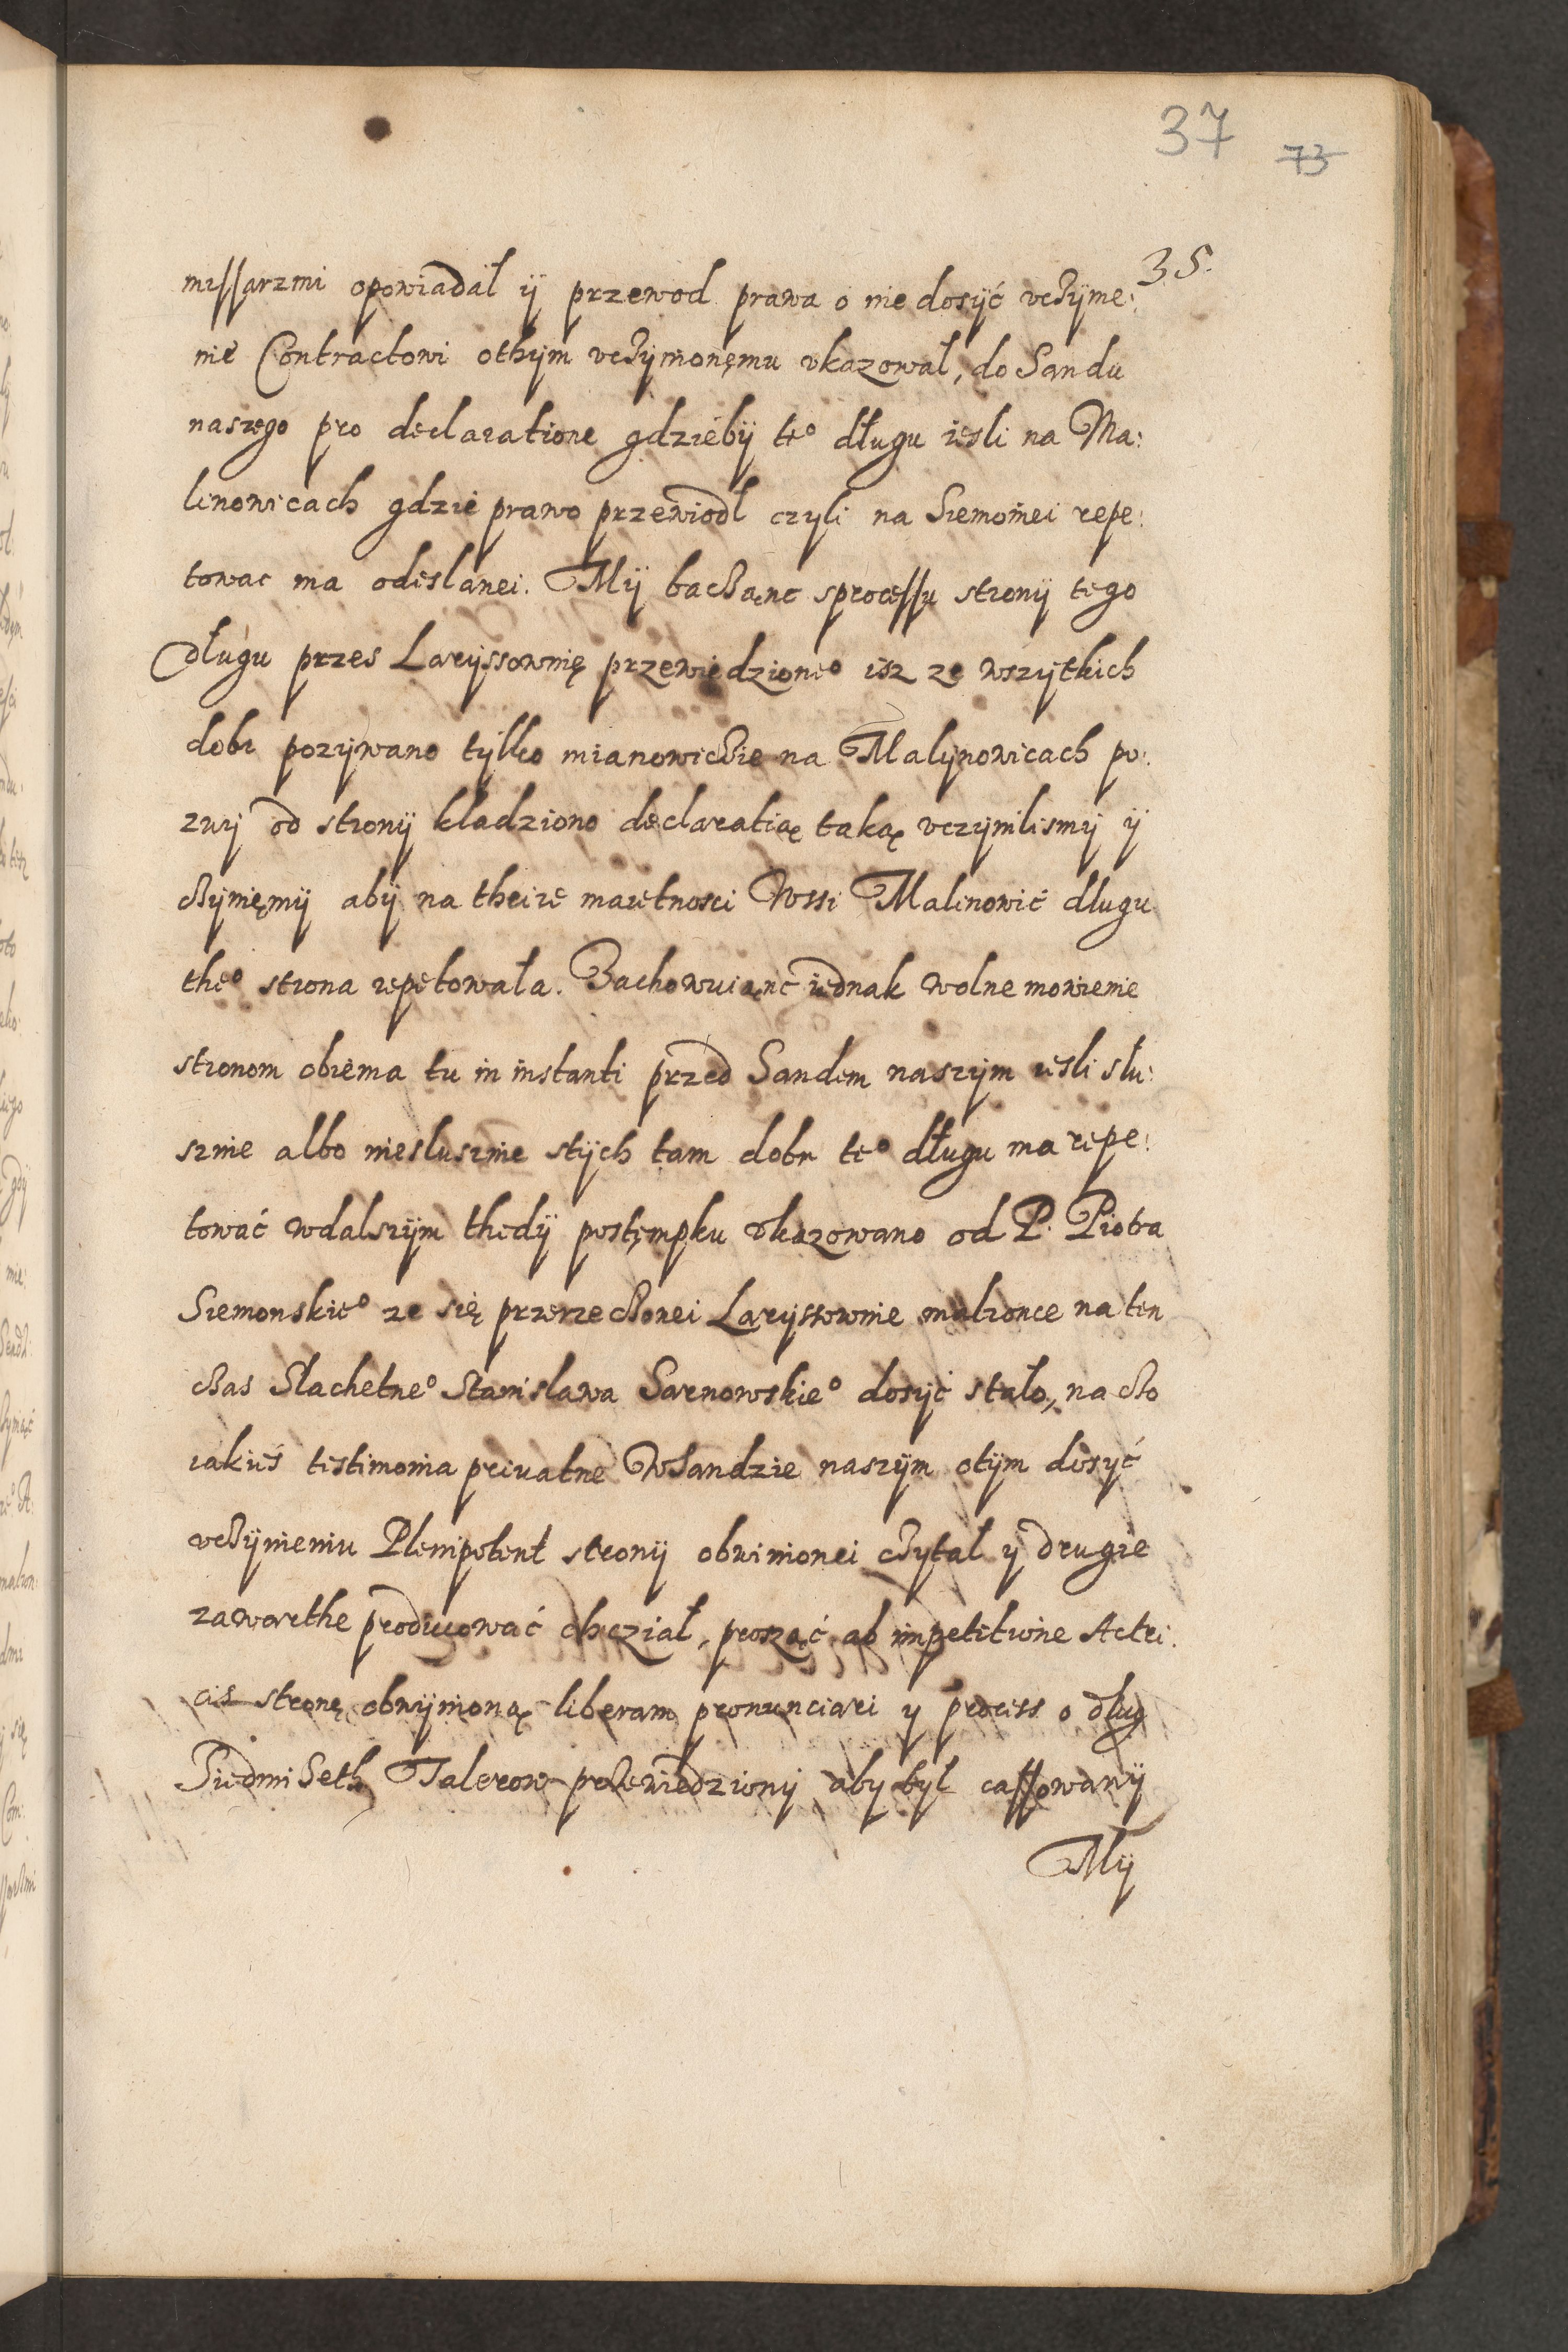 37 73
35.
missarzmi opowiadał ÿ przewod prawa o nie dosÿć vcżÿme:
nie Contractowi othÿm vcżÿnionęmu vkazował, do Sandu
naszego pro declaratione gdzieby teº długu iesli na Ma:
linowicach gdzie prawo przewiodł czyli na Siemoinei repe:
towac ma odeslanei. Mÿ bacżąnc sprocessu stronÿ tego
długu przes Laryssownię przewiedzioneº isz ze wszytkich
dobr pozywano tylko mianowicżie na Malynowicach po:
zwy od stronÿ kładziono declaratią taką vczynilismy ÿ
cżynięmÿ abÿ na theize maietnosci Wssi Malinowić dlugu
theº strona repetowała. Zachowuiąnc iednak wolne mowienie
stronom obiema tu in instanti przed Sandem naszym iesli słu:
sznie albo niesłusznie stÿch tam dobr teº długu ma repe:
tować wdalszÿm thedÿ postęmpku vkazowano od P. Piotra
Siemonskieº ze się przerzecżonei Laryssownie małzonce na ten
cżas Slachetneº Stanislawa Sarnowskieº dosyć stało, na cżo
iakieś testimonia priuatne WSandzie naszÿm otÿm dosyć
vcżÿnieniu Plenipotent stronÿ obwinionei cżytał y drugie
zawarthe producować chcział, prosząć ab impetitione Actri:
cis stronę obwynioną liberam pronunciari y process o dług
Siedmi Seth Talerow przewiedziony aby był cassowanÿ
Mÿ